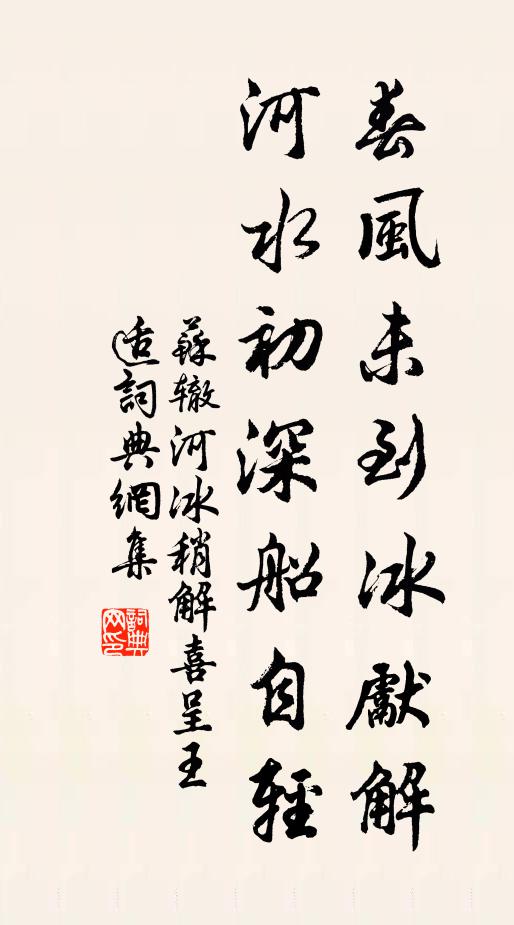 春風未到冰獻解
河水初深船自輕
蘇辙河冰稍解喜呈王
适詞典網集
詞典網印